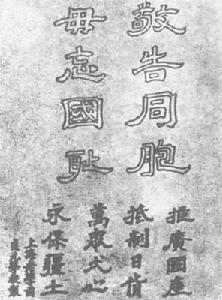 敬告同胞
毋忘國恥
推廣國產
抵制日貨
萬眾一心
永保疆土